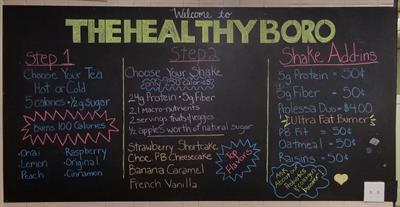 Welcome to
THEHEALTHYBORO
Step 1
Choose Your Tea
Hot or Cold
5 calories • ½g sugar
Burns 100 Calories
• Chai
Raspberry
• Lemon
• Original
• Peach
• Cinnamon
Step 2
Choose Your Shake
24g Protein • 5g Fiber
21 Macro-nutrients
2 servings fruits/veggies
½ apples worth of natural sugar
Strawberry Shortcake
Choc. PB Cheesecake
Banana Caramel
French Vanilla
Top
Flavors
Shake Add-ins
5g Protein = 50¢
5g Fiber = 50¢
Prolessa Duo = $4.00
Ultra Fat Burner
PB Fit = 50¢
Oatmeal = 50¢
Raisins = 50¢